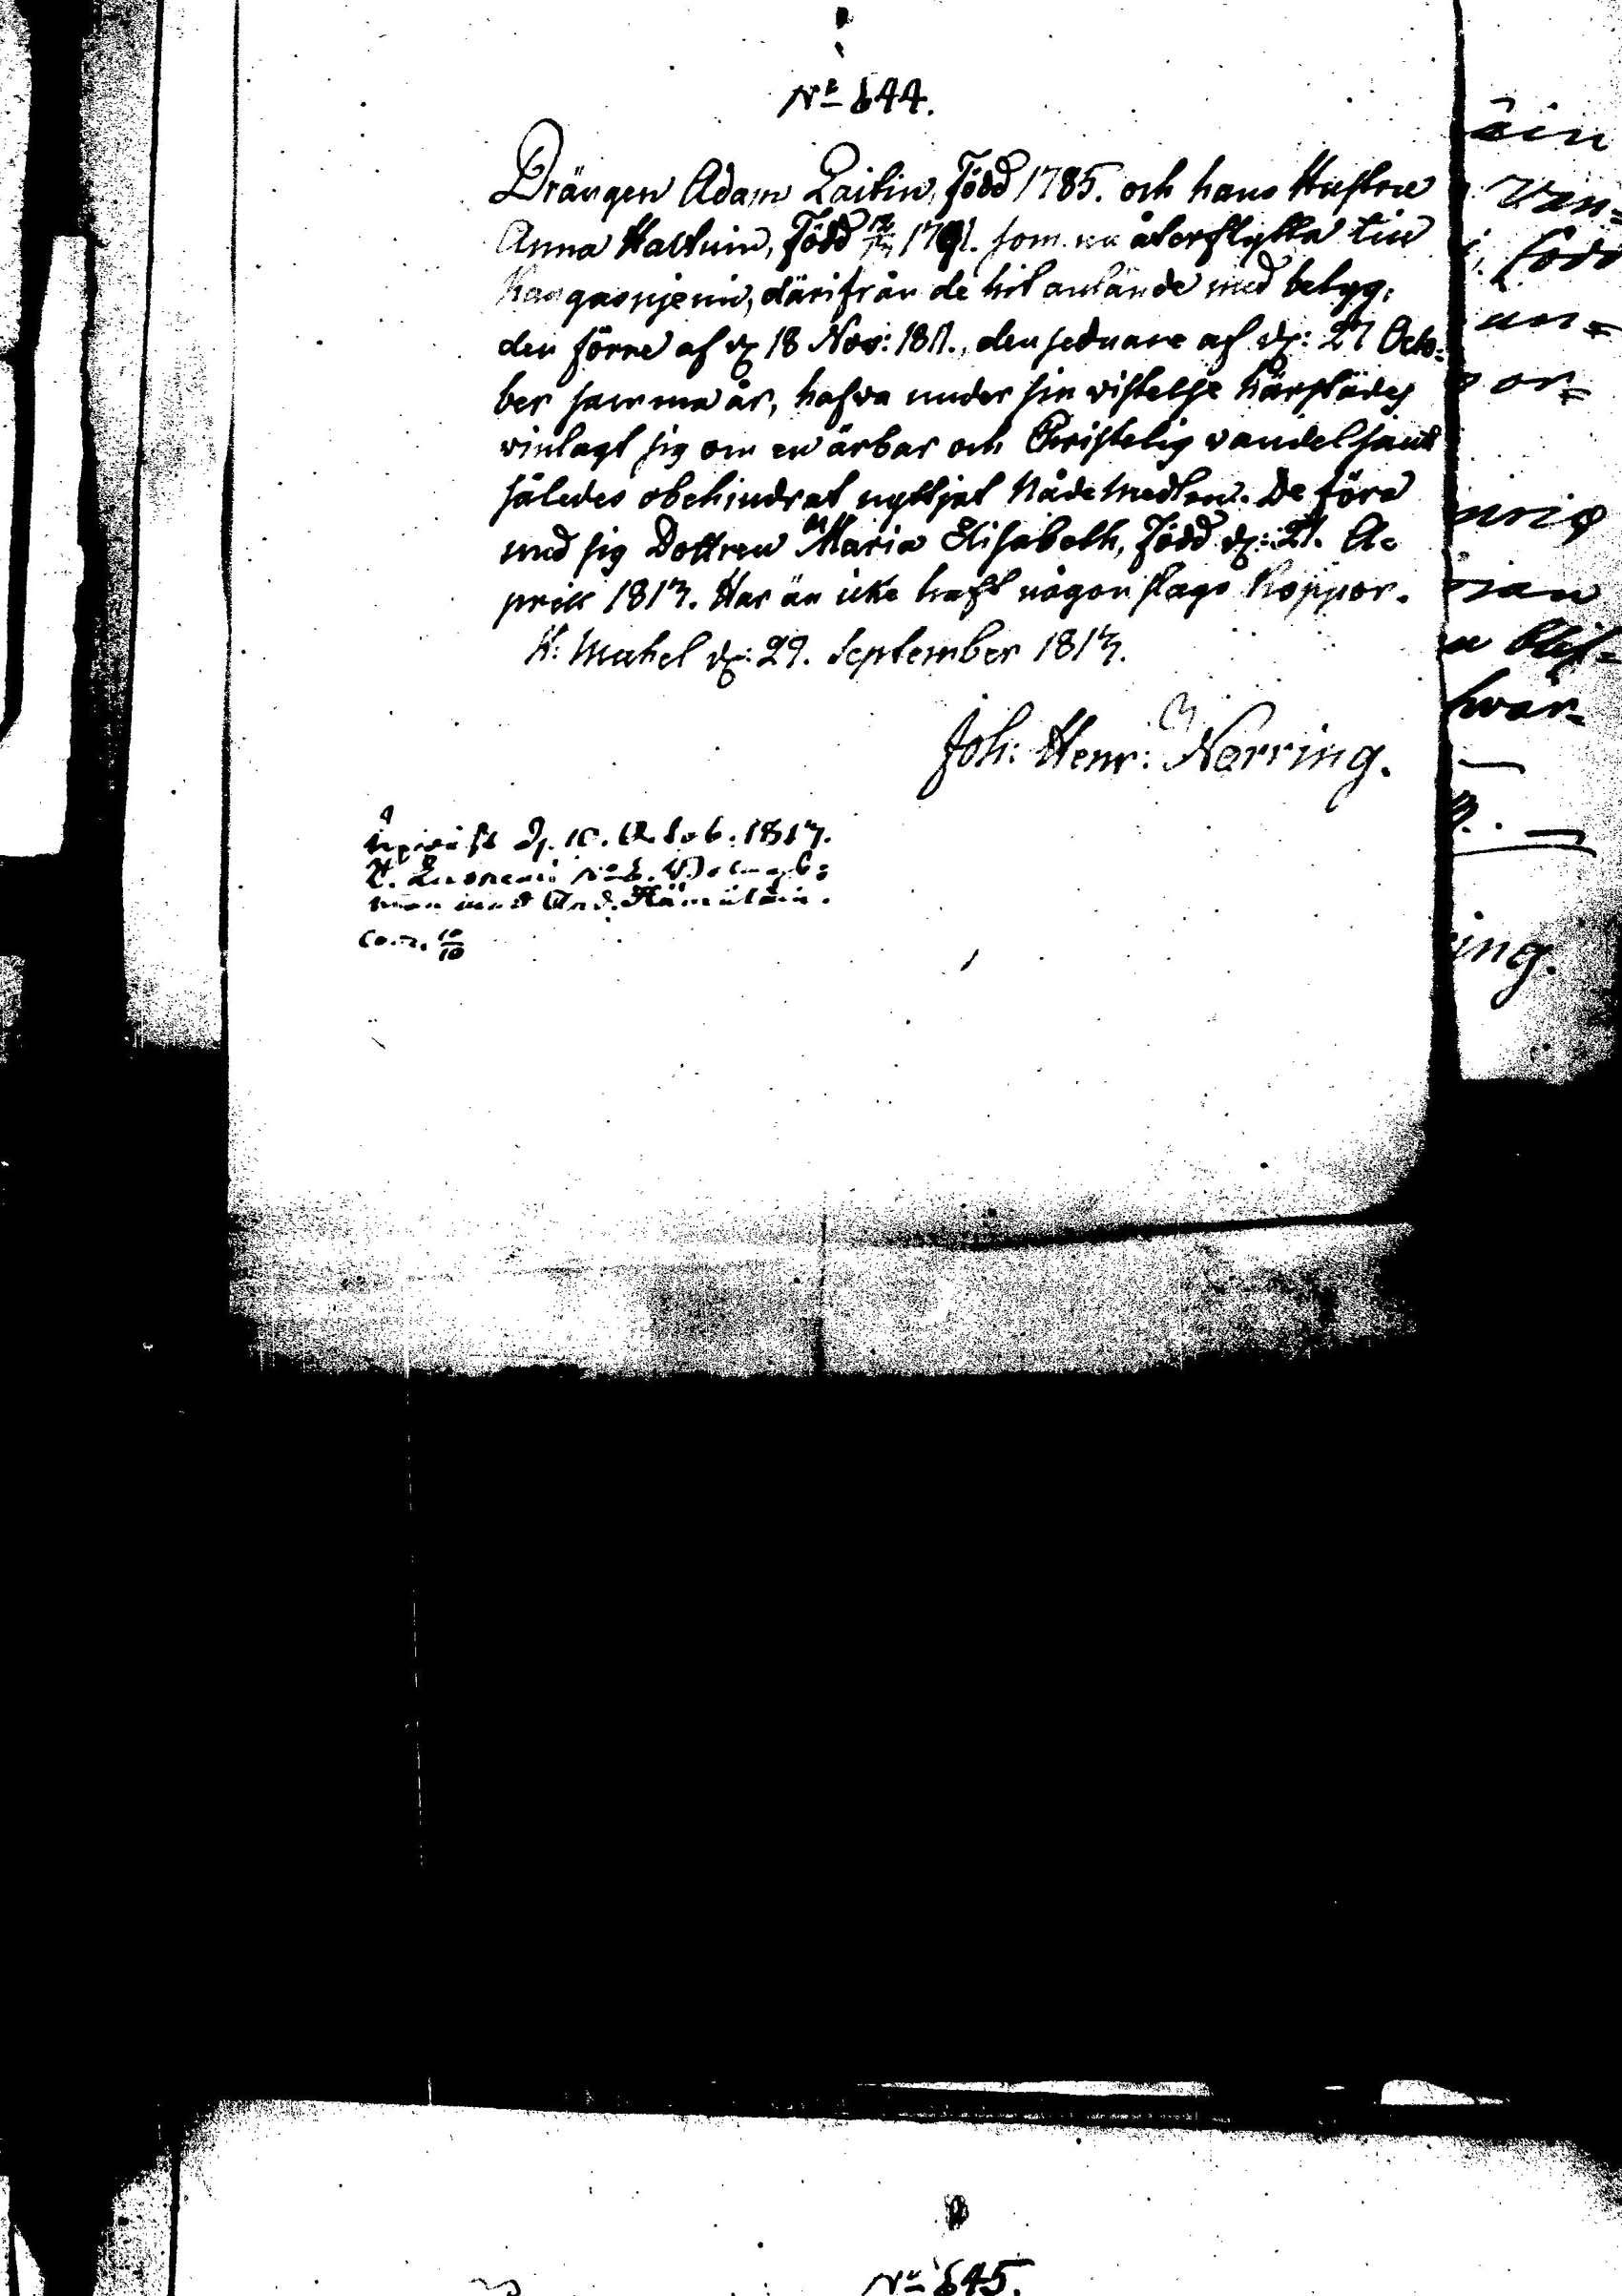 No 644.
Drängen Adam Laitin, Född 1785. och hans Hustru
Anna Haltuin, Född 1791. som nu återflytta till
Kangasnjemi, därifrån de hit anlände med betyg,
den förre af d: 18 Nov: 1811., den sednare af d: 27 Octo-
ber samma år, hafva under sin vistelse härstädes
vinlagt sig om en ärbar och Christelig vandel samt
således obehindrat nyttjat Nåde Medlen. De föra
med sig Dottren Maria Elisabeth, Född d: 21. A-
prill 1813. Har än icke haft någon slags Koppor.
St: Michel d: 29. September 1813.
Joh: Henr: Nerring.
d. 10. Octob. 1813.
And. Hämäläin.
10/10
äin
Van=
född
un=
or=
hvar=
ing.
No 645.